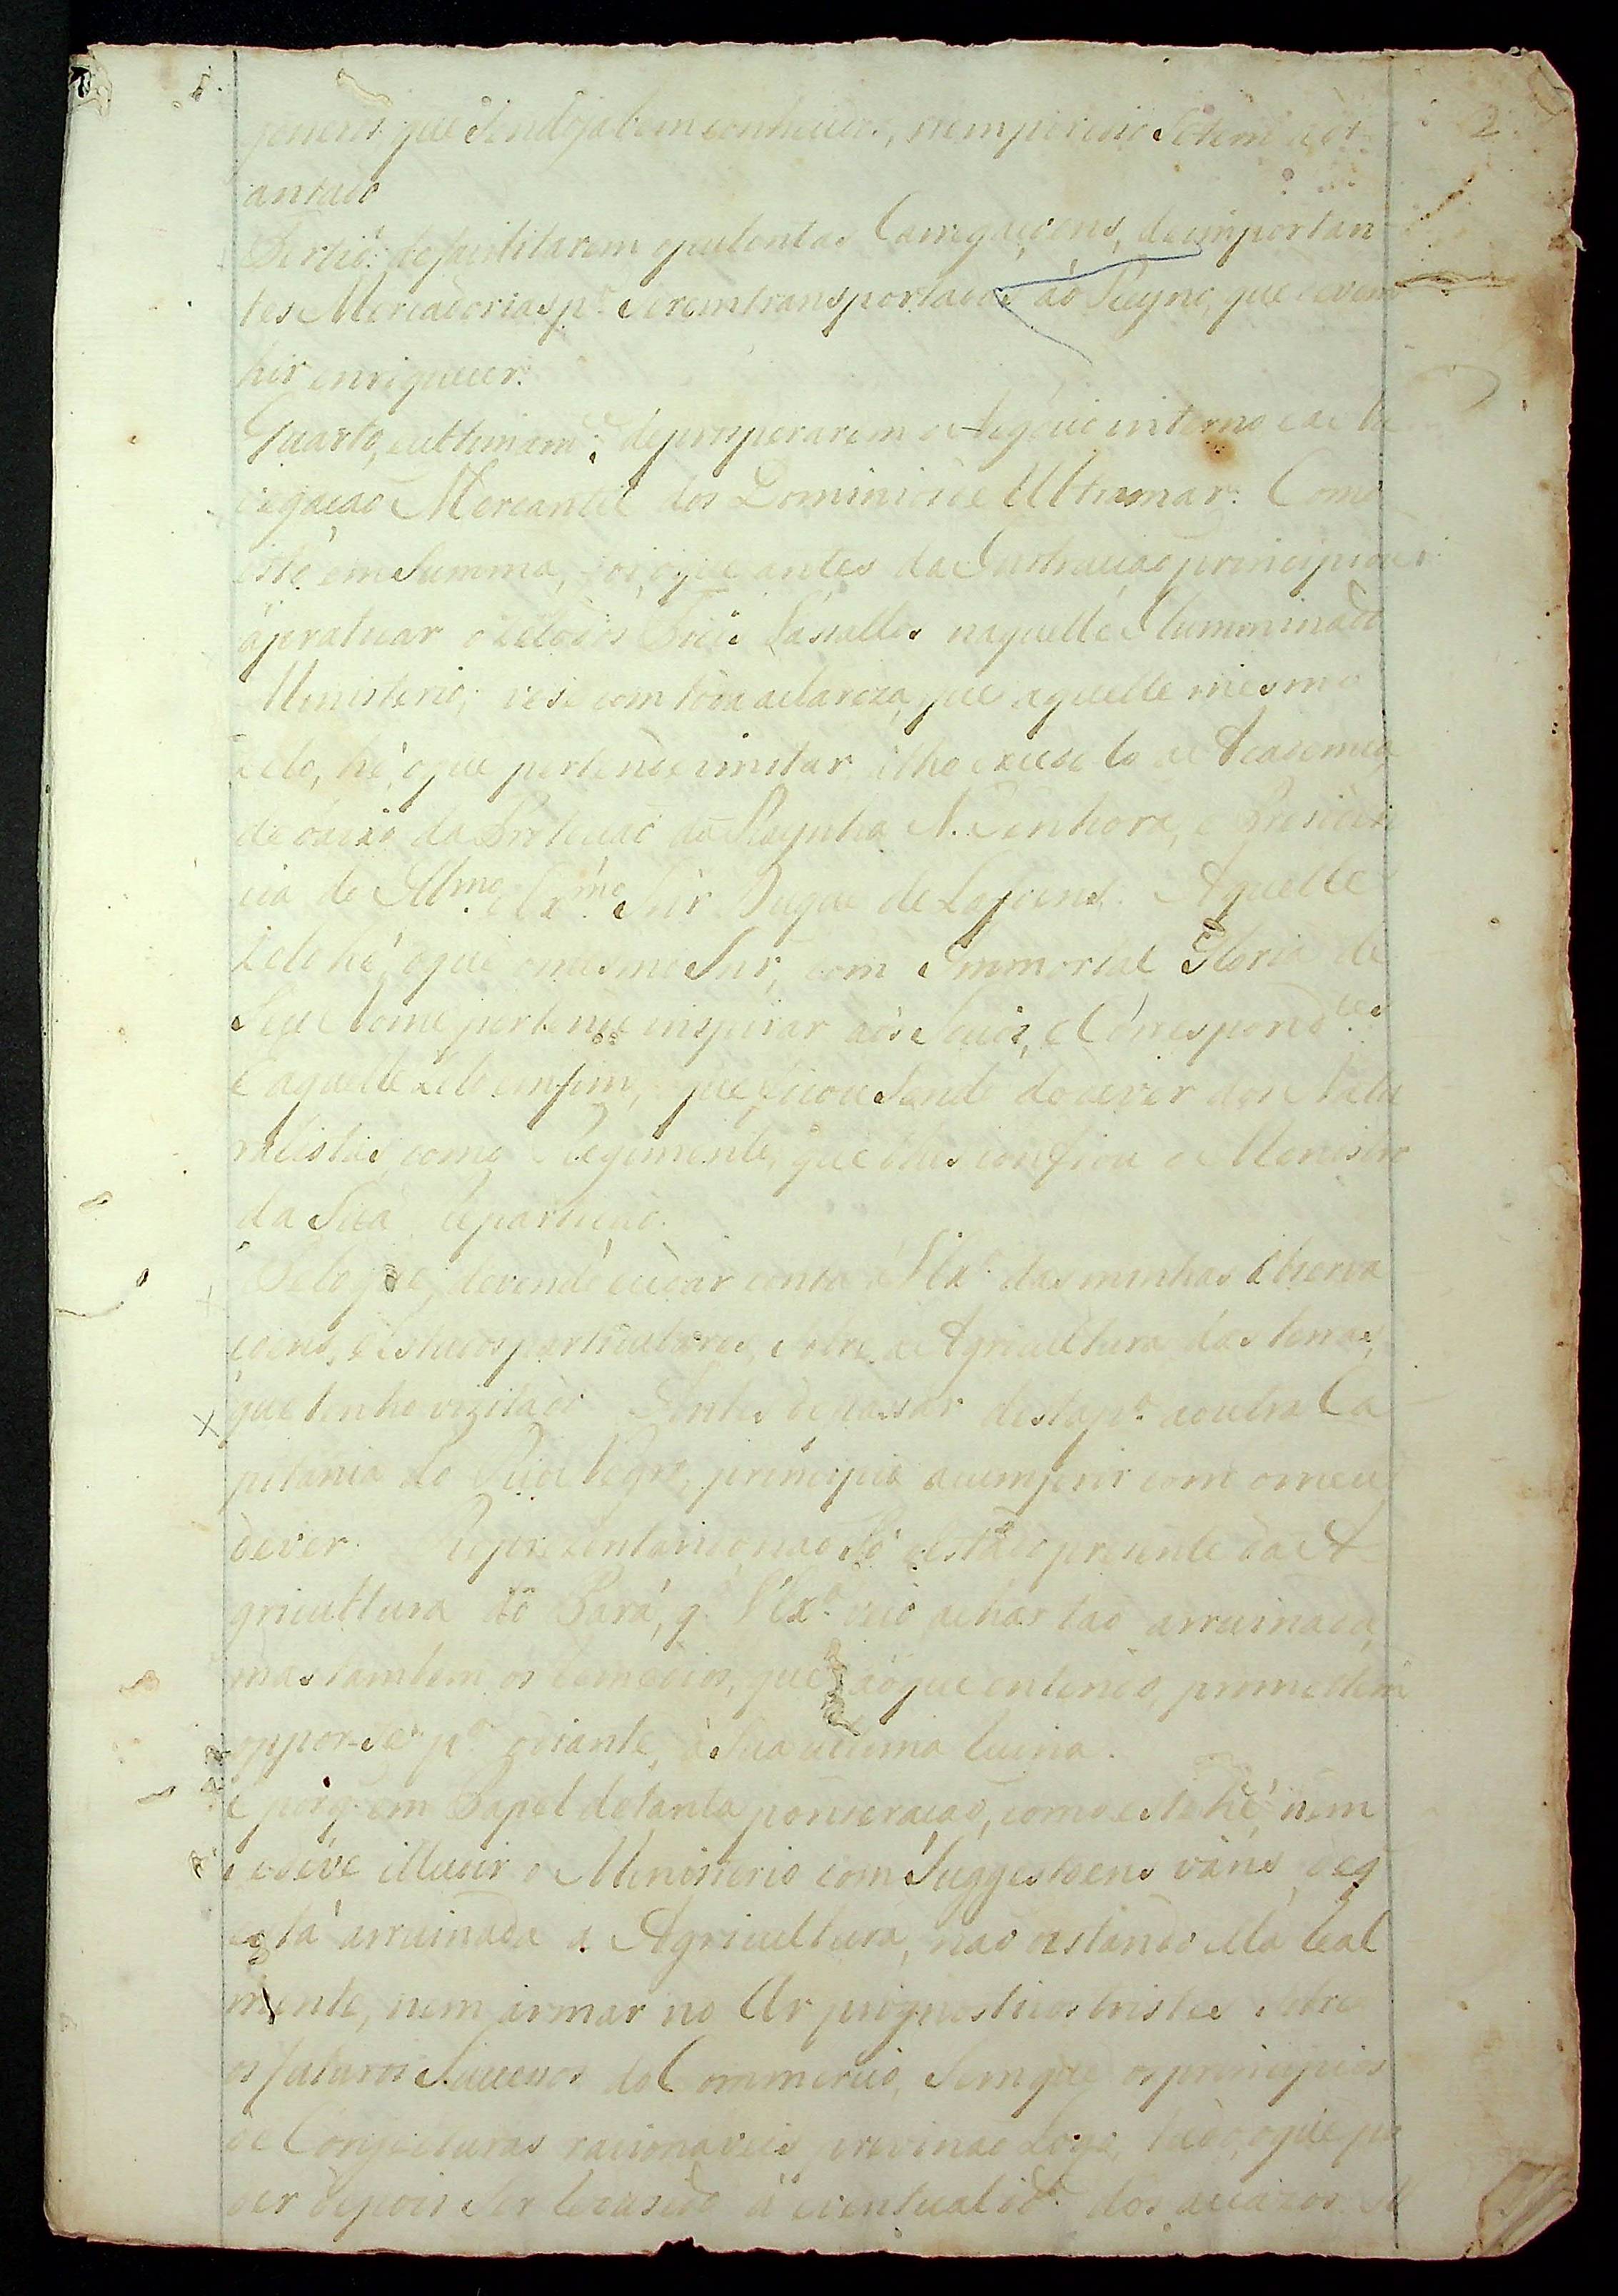 2
generos que sendo ja bem conhecidos, nem por isso se tem adi-
antado
Terceiro: de facilitarem opulentas Carregaçoens, de importan
tes Mercadorias pª serem transportadas ao Reyno, que devem
hir enriquecer.
Quarto, e ultimamᵉ: de prosperarem o Negocio interno e a Na
vegação Mercantil dos Dominios de Ultramar. Como
isto em Summa, foi, o que antes da Instrucção principiou
a praticar o zelo dos Fieis Vassallos naquelle Illumminado
Ministerio; vese com toda a clareza, que aquelle mesmo
zelo, hé o que pertende imitar, e lho excede la a Academia
de baixo da Protecção da Raynha N. Senhora, e Presiden
cia do Illᵐᵒ e Exᵐᵒ Snr Duque de Lafoens. Aquelle
zelo hé, o que o mesmo Snr, com Immortal Gloria de
Seu Nome pertende inspirar aos Socios, e Correspondᵉˢ
E aquelle zelo em fim, que ficou sendo do dever dos Natu
ralistas, como Regimento, que lhes confiou o Menistro
da Sua Repartição.
Pelo que, devendo eu dar conta a VExª das minhas Observa
coens, e Estudos particulares, sobre a Agricultura das terras,
que tenho vizitado Antes de passar desta pª a outra Ca
pitania do Rio Negro, principio a cumprir com o meu
dever. Reprezentando não só o estado prezente da A-
gricultura do Pará, q. VExª veio achar tão arruinada,
mas tambem os remedios, que ao que entendo, promettem
oppor-se pª diante, à Sua ultima ruina.
E porq. em Papel de tanta ponderação, como este hé, nem
se deve illudir o Menisterio com Suggestoens váns, de q
está arruinada a Agricultura, não estando ella Real
mente, nem formar no Ar prognosticos tristes sobre
os futuros Successos do Commercio, Sem que os principios
de Conjecturas racionaveis previnão Logo, tudo, o que po
der depois ser trazido á eventualidᵉ dos acazos.